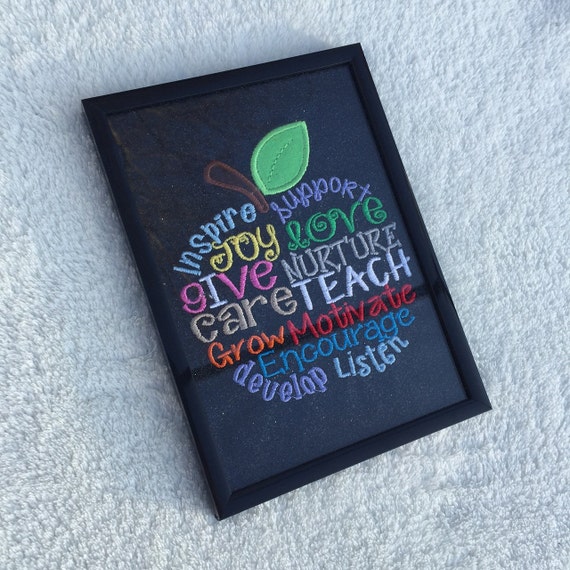 Inspire support
JOY LOVE
gIVe NURTURE
care TEACH
Grow Motivate
Encourage
develop Listen